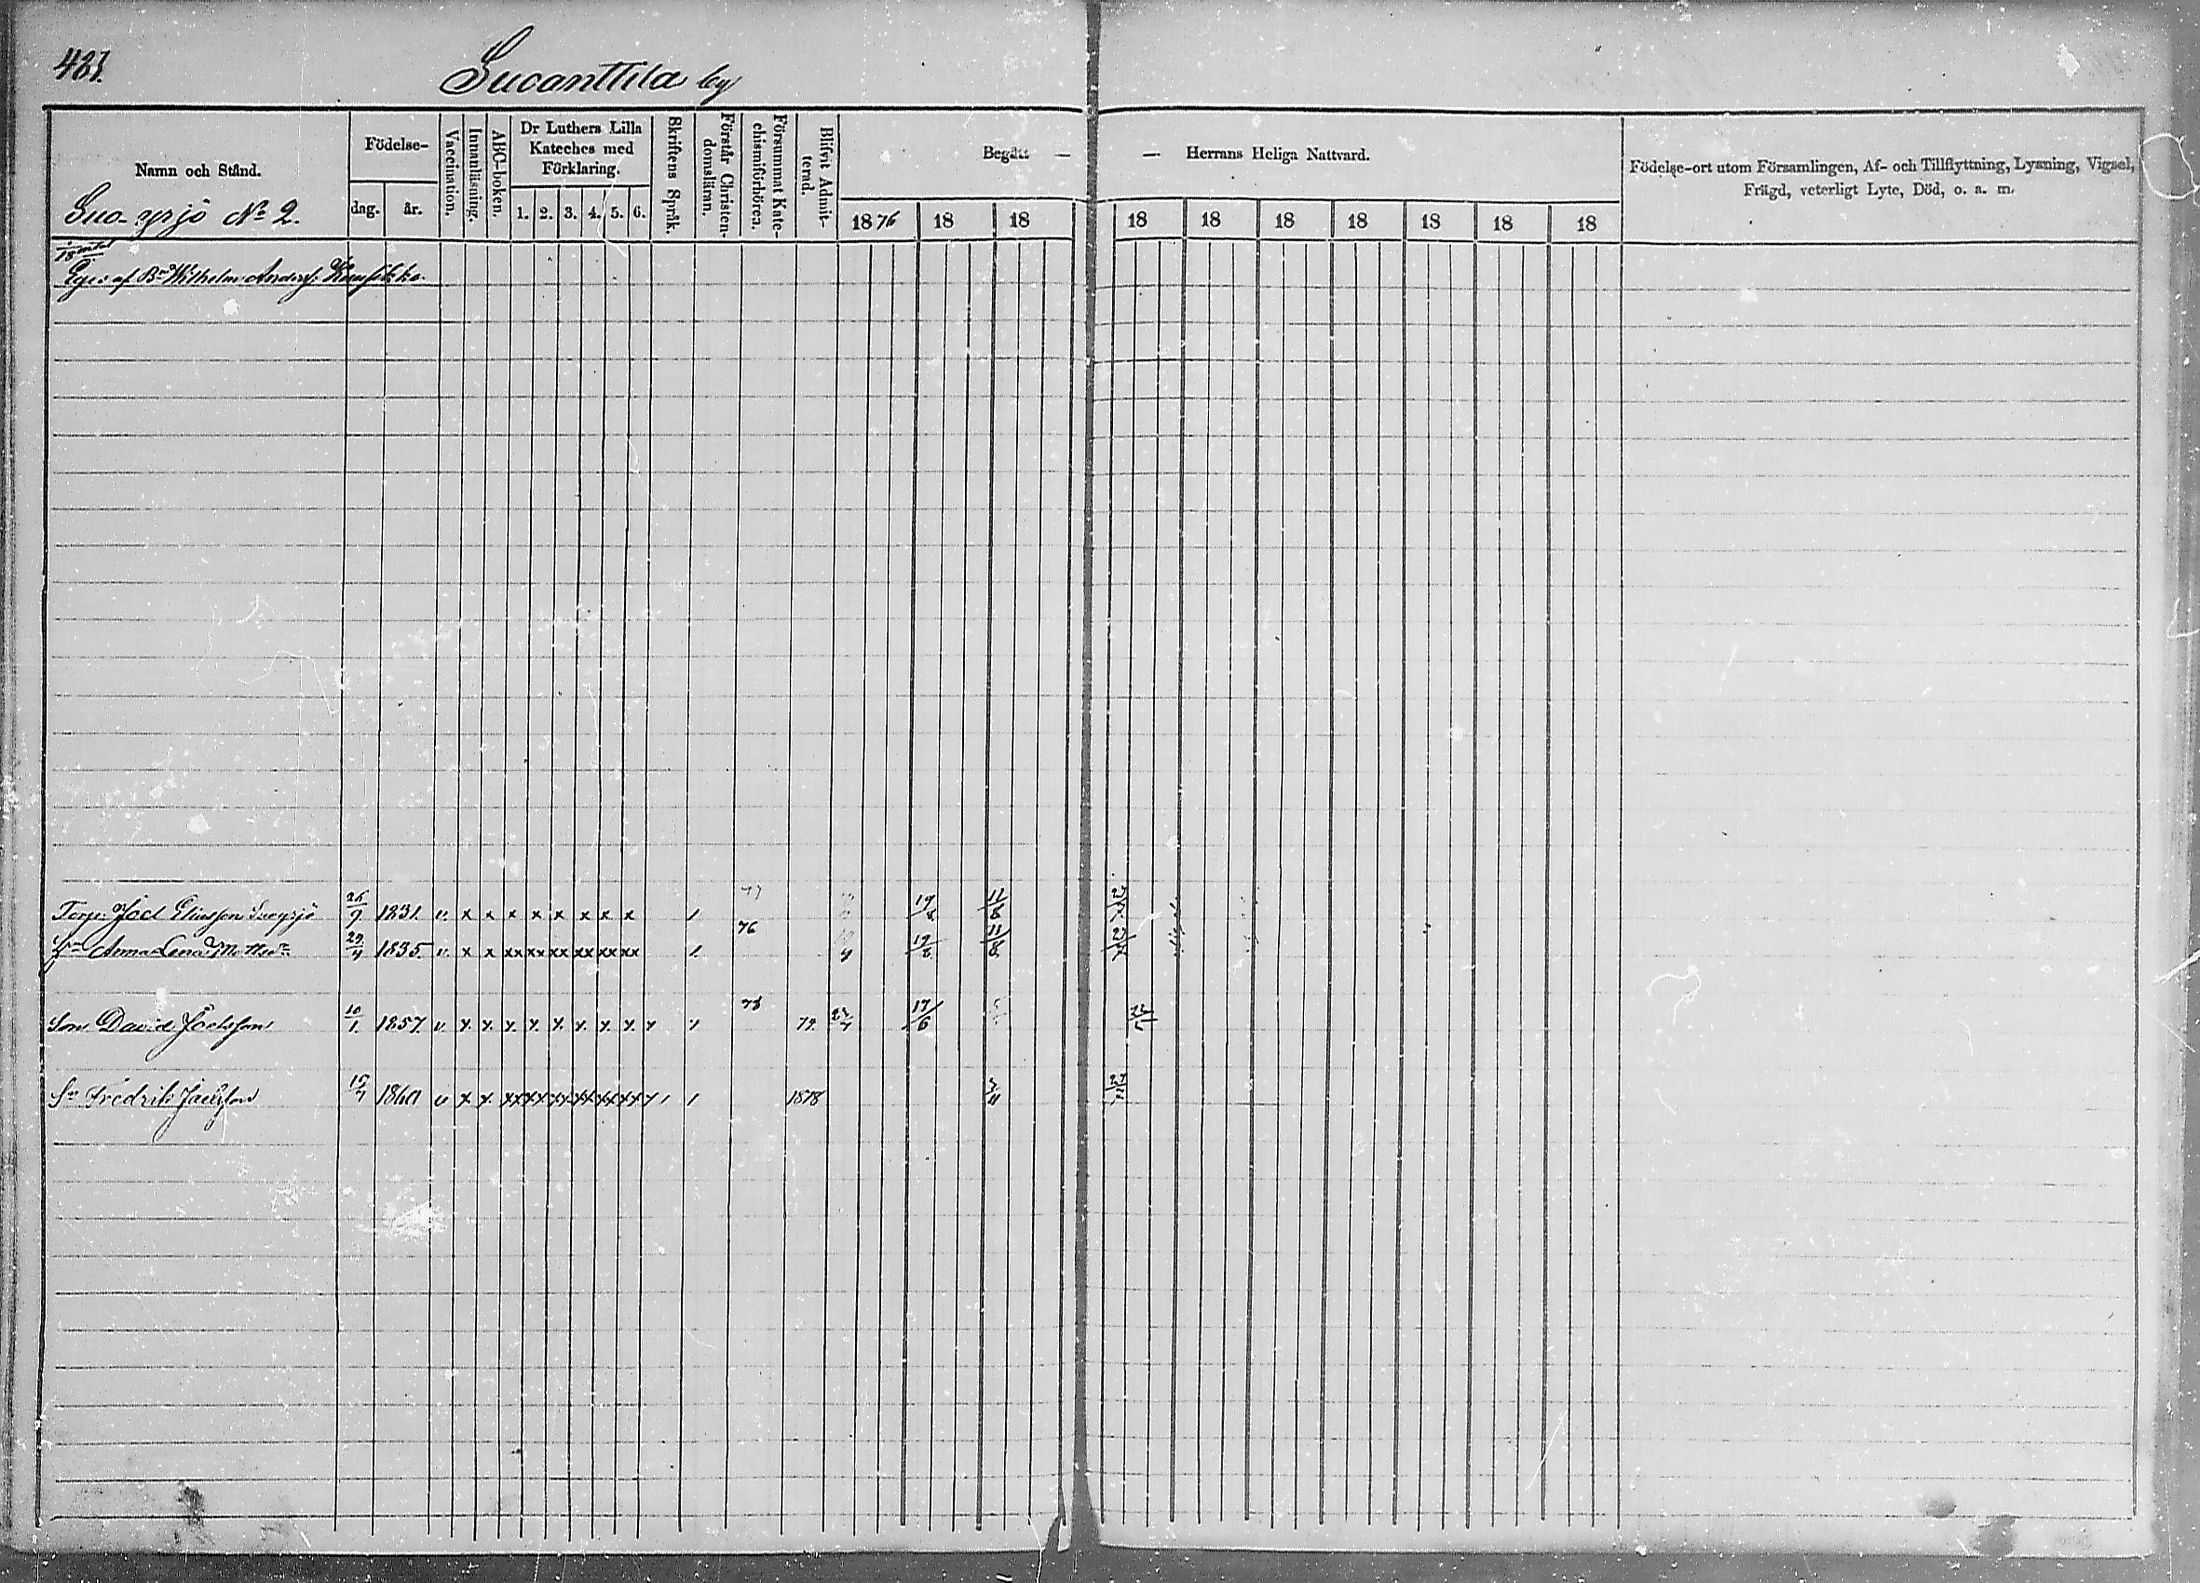 481.
Sucanttila by
Namn och Stånd.
Födelse-
dag. år.
Vaccination.
Innanläsning.
ABC-boken.
Dr Luthers Lilla
Kateches med
Förklaring.
1. 2. 3. 4. 5. 6.
Skriftens Språk.
Förstår Christen-
domsläran.
Försummat Kate-
chismiförhören.
Blifvit Admit-
terad.
Begått — — Herrans Heliga Nattvard.
1876 18 18 18 18 18 18 18 18 18
Födelse-ort utom Församlingen, Af- och Tillflyttning, Lysning, Vigsel,
Frägd, veterligt Lyte, Död, o. a. m.
Suo-yrjö No 2.
Eges af Bn Wilhelm Anderss:
Torp. Joel Eliasson Suoyrjö 26/9 1831. v. x x x x x x x x 1 19/8 11/8
Hu Anna Lena Mattsdr 29/4 1835. v. x x xx xx xx xx xx xx 1 76 19/8 11/8
Son David Joelsson 10/1. 1857. v. x. x. x. x. x. x. x. x. x 79. 17/6
Sn Fredrik Joelsson 1860 v x x. xx xx xx xx xx xx 1 1878 3/11